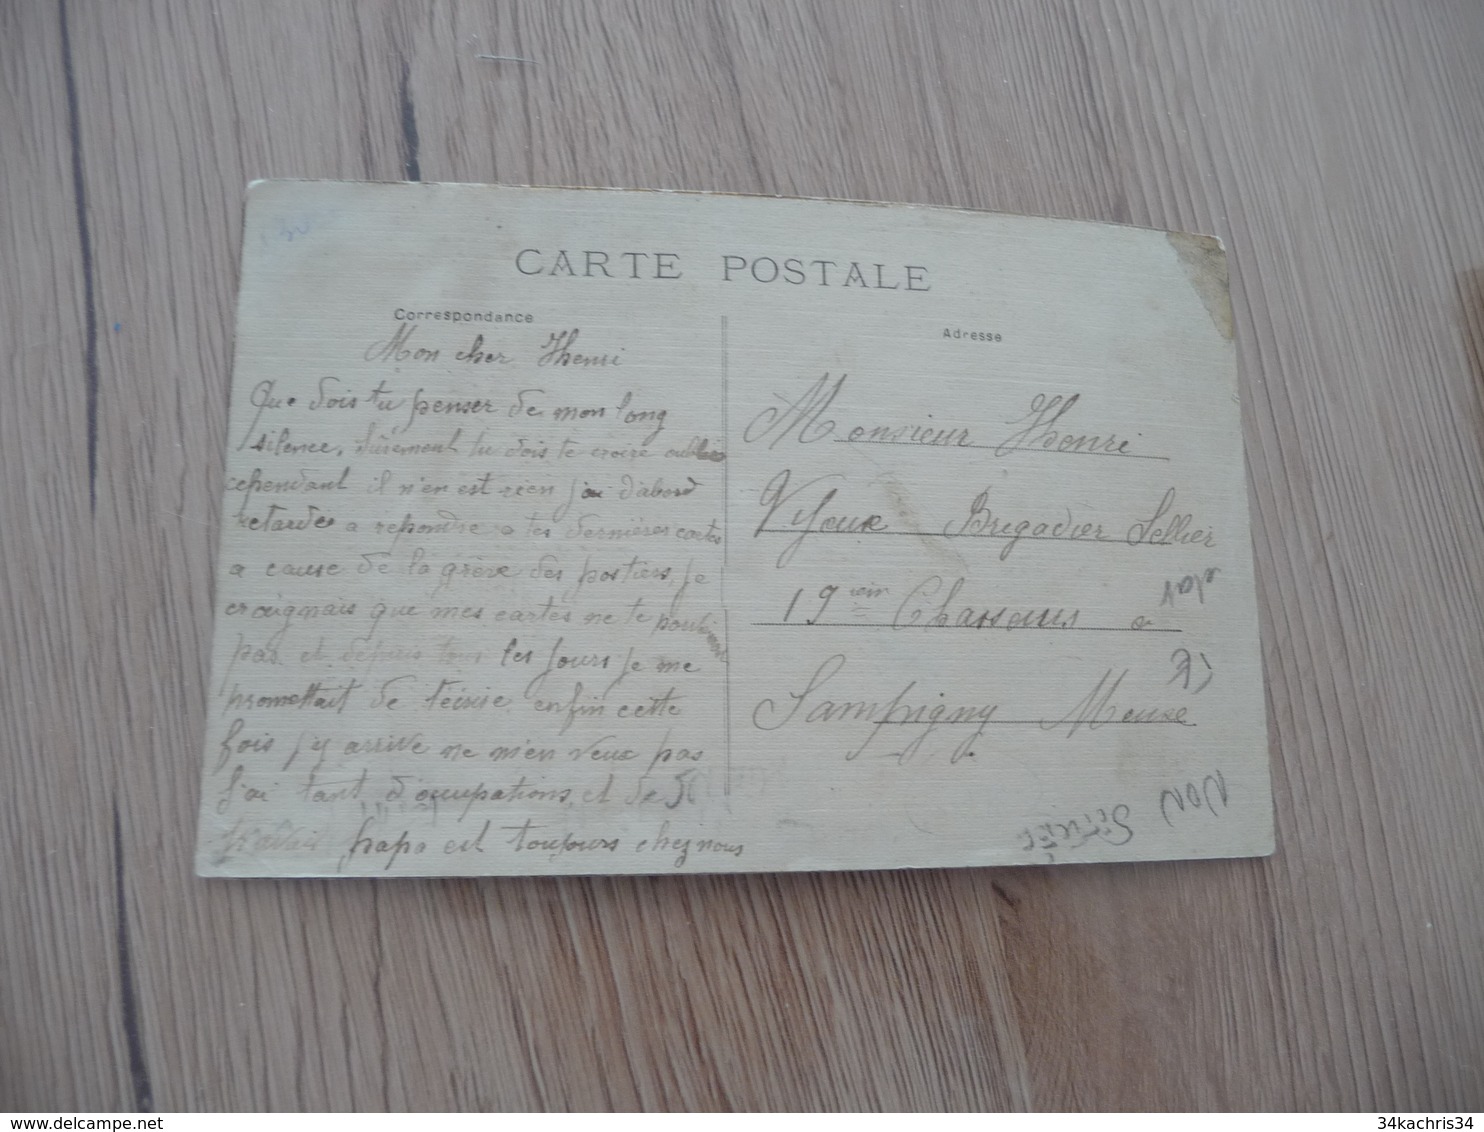 CARTE POSTALE
Correspondance
Mon cher Henri
Que dois tu penser de mon long
silence, sûrement tu dois te croire oublié
cependant il n'en est rien j'ai d'abord
retarde a repondre a tes dernières cartes
a cause de la grève des postiers, je
craignais que mes cartes ne te parviennent
pas et depuis tous les jours je me
promettait de t'écrire enfin cette
fois j'y arrive ne m'en veux pas
j'ai tant d'occupations, et de
travail papa est toujours chez nous
Adresse
Monsieur Henri
Brigadier Sellier
19 iem Chasseurs a
Sampigny Meuse
NON
34kachris34